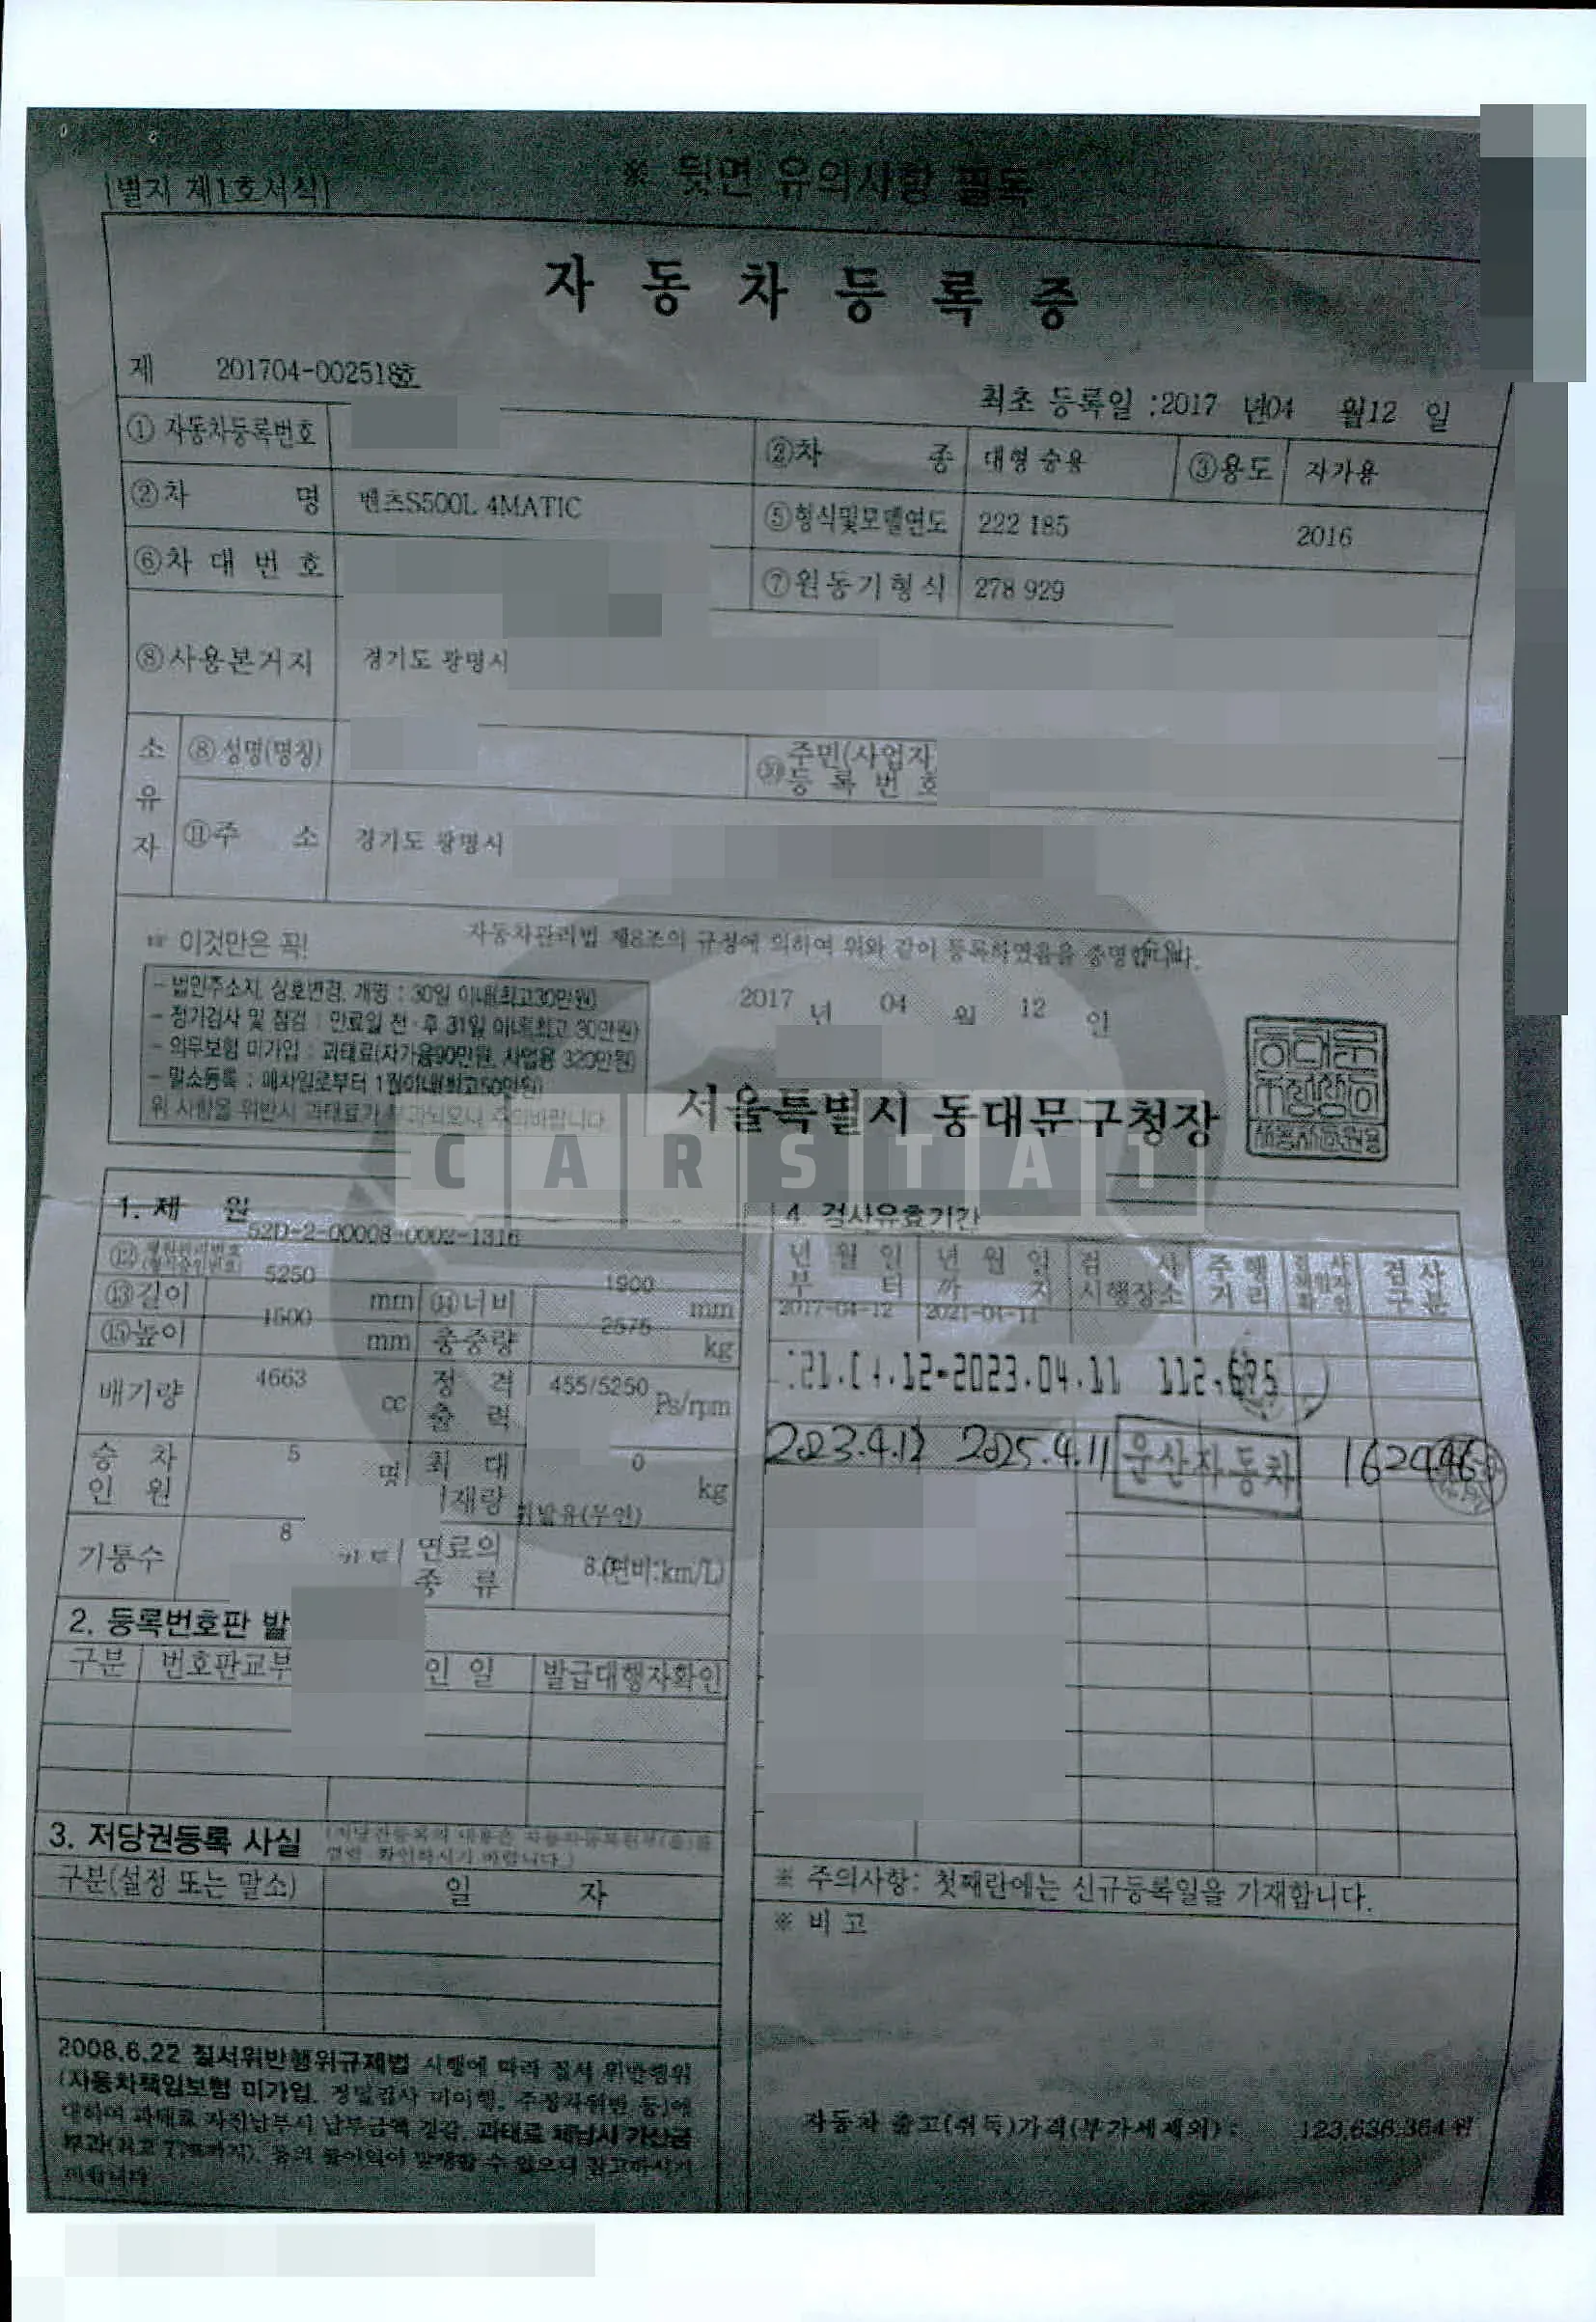 [별지 제1호서식]
※ 뒷면 유의사항 필독
자동차등록증
제 201704-002518호
최초 등록일 :2017 년04 월12 일
① 자동차등록번호
②차 종 대형 승용 ③용도 자가용
②차 명 벤츠S500L 4MATIC
⑤형식및모델연도 222 185 2016
⑥차 대 번 호
⑦원동기형식 278 929
⑧사용본거지 경기도 광명시
소유자
⑧성명(명칭)
⑩주민(사업자
등 록 번 호
⑪주 소 경기도 광명시
자동차관리법 제8조의 규정에 의하여 위와 같이 등록하였음을 증명합니다.
☞ 이것만은 꼭!
- 법인주소지, 상호변경, 개명 : 30일 이내(최고30만원)
- 정기검사 및 점검 : 만료일 전·후 31일 이내(최고 30만원)
- 의무보험 미가입 : 과태료(자가용90만원, 사업용 320만원)
- 말소등록 : 폐차일로부터 1월이내(최고50만원)
위 사항을 위반시 과태료가 부과되오니 주의바랍니다.
2017 년 04 월 12 일
서울특별시 동대문구청장
CARSTAT
1. 제 원
52D-2-00008-0002-1316
⑬길이 5250 mm ⑭너비 1900 mm
⑮높이 1500 mm 총중량 2575 kg
배기량 4663 cc 정격출력 455/5250 Ps/rpm
승차인원 5 명 최대 재량 0 kg
휘발유(무연)
기통수 8 기통 연료의 종류 8.(연비:km/L)
2. 등록번호판 발
구분 번호판교부 인 일 발급대행자확인
3. 저당권등록 사실
구분(설정 또는 말소) 일 자
2008.6.22 질서위반행위규제법 시행에 따라 질서 위반행위
(자동차책임보험 미가입, 정밀검사 미이행, 주정차위반 등)에
대하여 과태료 자진납부시 납부금액 경감, 과태료 체납시 가산금
4. 검사유효기간
년 월 일 부 터 년 월 일 까 지 검 사 시행장소 주 행 거 리 검 사 구 분
2017-04-12 2021-04-11
12-2023.04.11 112,695
2023.4.12 2025.4.11 운산자동차 162446
※ 주의사항: 첫째란에는 신규등록일을 기재합니다.
※ 비 고
자동차 출고(취득)가격(부가세제외) : 123,636,364원